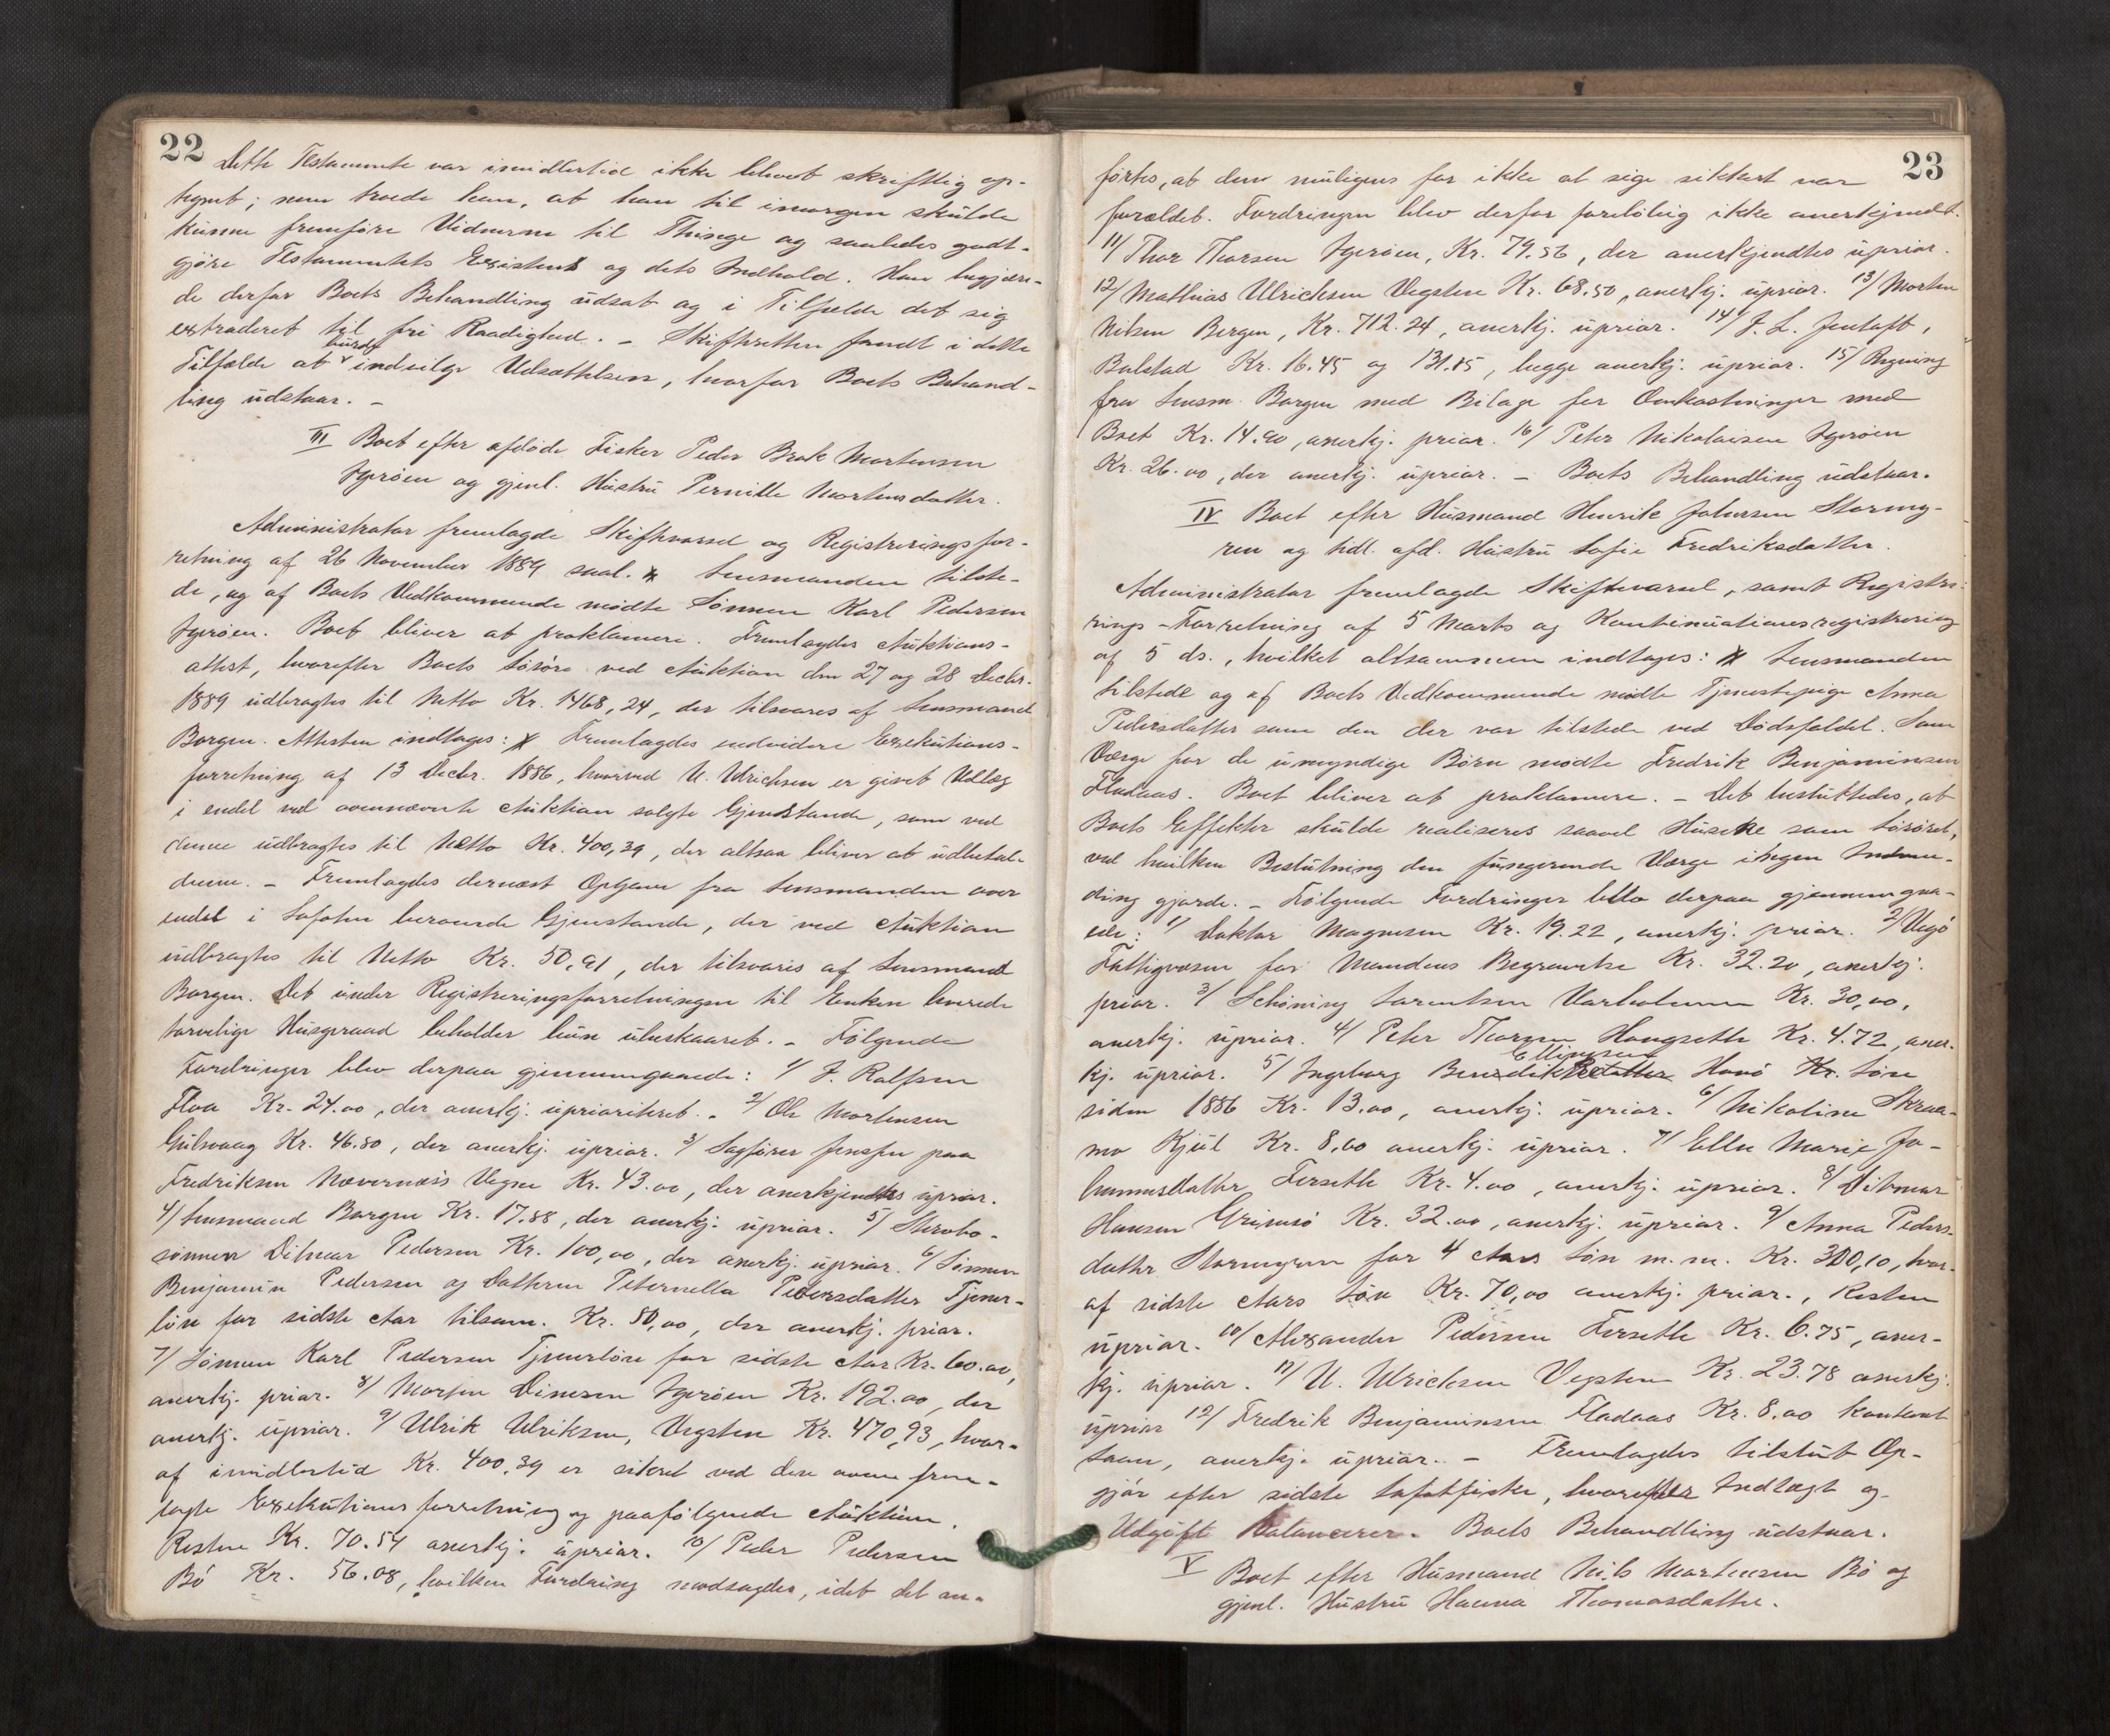 22
Dette Testamente var imidlertid ikke blevet skriftlig op-
tegnet; men troede han, at han til imorgen skulde
kunne fremføre Vidnerne til Thinge og saaledes godt-
gjöre Testamentets Existents og dets Indhold. Han begjære-
de derfor Boets Behandling udsat og i Tilfælde det sig
extraderet til fri Raadighed. - Skifteretten fandt i dette
Tilfælde at burde indvilge Udsættelsen, hvorfor Boets Behand-
ling udstaar. -
III Boet efter afdöde Fisker Peder Brok Mortensen
Igeröen og gjenl. Hustru Pernille Mortensdatter.
Administrator fremlagde Skiftevarsel og Registreringsfor-
retning af 26 November 1889 saal. Lensmanden tilste-
de, og af Boets Vedkommende mödte Sönnen Karl Pedersen
Igeröen. Boet bliver at proklamere. Fremlagdes Auktions-
attest, hvorefter Boets Lösöre ved Auktion den 27 og 28 Decbr.
1889 udbragtes til Netto Kr. 1468,24, der tilsvares af Lensmand
Borgen. Attesten indtages: Fremlagdes endvidere Exekutions-
forretning af 13 Decbr. 1886, hvorved U. Ulrichsen er givet Udlæg
i endel ved ovennævnte Auktion solgte Gjenstande, som ved
denne udbragtes til Netto Kr. 400,39, der altsaa bliver at udbetale
denne. - Fremlagdes dernæst Opgave fra Lensmanden over
endel i Lofoten beroende Gjenstande, der ved Auktion
udbragtes til Netto Kr. 50,91, der tilsvares af Lensmand
Borgen. Det under Registreringsforretningen til Enken leverede
tarvelige Husgeraad beholder hun ubeskaaret. - Fölgende
Fordringer blev derpaa gjennemgaaede: 1/ J. Rolfsen
Floa Kr. 24.00, der anerkj. uprioriteret. - 2/ Ole Mortensen
Gulsvaag Kr. 46.80, der anerkj. uprior. 3/ Sagförer Jensen paa
Fredriksen Nævernæs's Vegne Kr. 43.00, der anerkjendtes uprior.
4/ Lensmand Borgen Kr. 17.88, der anerkj. uprior. 5/ Skrobo-
sönnen Ditmar Pedersen Kr. 100,00, der anerkj. uprior. 6/ Sönnen
Benjamin Pedersen og Datteren Peternella Pedersdatter Tjener-
lön for sidste Aar tilsam. Kr. 80,00, der anerkj. prior.
7/ Sönnen Karl Pedersen Tjenerlön for sidste Aar Kr. 60.00,
anerkj. prior. 8/ Morten Dinesen Igeröen Kr. 192.00, der
anerkj. uprior. 9/ Ulrik Ulriksen, Vegsten Kr. 470,93, hvor-
af imidlertid Kr. 400.39 er sikret ved den oven frem-
lagte Exekutionsforretning og paafölgende Auktion.
Resten Kr. 70.54 anerkj. uprior. 10/ Peder Pedersen
Bö Kr. 56.08, hvilken Fordring modsagdes, idet det an-
23
førtes, at den muligens for ikke at sige sikkert var
forældet. Fordringen blev derfor foreløbig ikke anerkjendt.
11/ Thor Thorsen Igeröen, Kr. 79.56, der anerkjendtes uprior.
12/ Mathias Ulricksen Vegsten Kr. 68.50, anerkj. uprior. 13/ Morten
Nilsen Bergen, Kr. 712.24, anerkj. uprior. 14/ J. L. Jentoft,
Balstad Kr. 16.45 og 131.15, begge anerkj. uprior. 15/ Regning
fra Lensm. Borgen med Bilage for Omkostninger med
Boet Kr. 14.90, anerkj. prior. 16/ Peter Nikolaisen Igeröen
Kr. 26.00, der anerkj. uprior. - Boets Behandling udstaar.
IV Boet efter Husmand Henrik Johnsen Stormy-
ren og tidl. afd. Hustru Sofie Fredriksdatter.
Administrator fremlagde Skiftevarsel, samt Registre-
rings-Forretning af 5 Marts og Kontinuationsregistrering
af 5 ds., hvilket altsammen indtages: Lensmanden
tilstede og af Boets Vedkommende mödte Tjenestepige Anna
Pedersdatter som den der var tilstede ved Dödsfaldet. Som
Værge for de umyndige Börn mödte Fredrik Benjaminsen
Fladaas. Boet bliver at proklamere. - Det besluttedes, at
Boets Effekter skulde realiseres saavel Husene som Lösöret,
ved hvilken Beslutning den fungerende Værge ingen Indven-
ding gjorde. - Fölgende Fordringer blev derpaa gjennemgaa-
ede: 1/ Doktor Magnesen Kr. 19.22, anerkj. prior. 2/ Vegö
Fattigvæsen for Mandens Begravelse Kr. 32.20, anerkj.
prior. 3/ Schöning Lorentsen Vareholmen Kr. 30,00,
anerkj. uprior. 4/ Peter Thorsen Hongseth Kr. 4.72, aner-
kj. uprior. 5/ Ingeborg Ellingsen Havö Kr. Lön
siden 1886 Kr. 13.00, anerkj. uprior. 6/ Nikoline Skraa-
mo Kjul Kr. 8.00 anerkj. uprior. 7/ Ellen Marie Jo-
hannesdatter Ferseth Kr. 4.00, anerkj. uprior. 8/ Ditmar
Hansen Grimsö Kr. 32.00, anerkj. uprior. 9/ Anna Peders-
datter Stormyren for 4 Aars Lön m.m. Kr. 300,10, hvor-
af sidste Aars Lön Kr. 70,00 anerkj. prior., Resten
uprior. 10/ Alexander Pedersen Ferseth Kr. 6.75, aner-
kj. uprior. 11/ U. Ulricksen Vegsten Kr. 23.78 anerkj.
uprior 12/ Fredrik Benjaminsen Fladaas Kr. 8.00 kontant
Laan, anerkj. uprior. - Fremlagdes tilslut Op-
gjör efter sidste Lofotfiske, hvorefter Indtægt og
Udgift balancerer. Boets Behandling udstaar.
V Boet efter Husmand Nils Mortensen Bö og
gjenl. Hustru Hanna Thomasdatter.